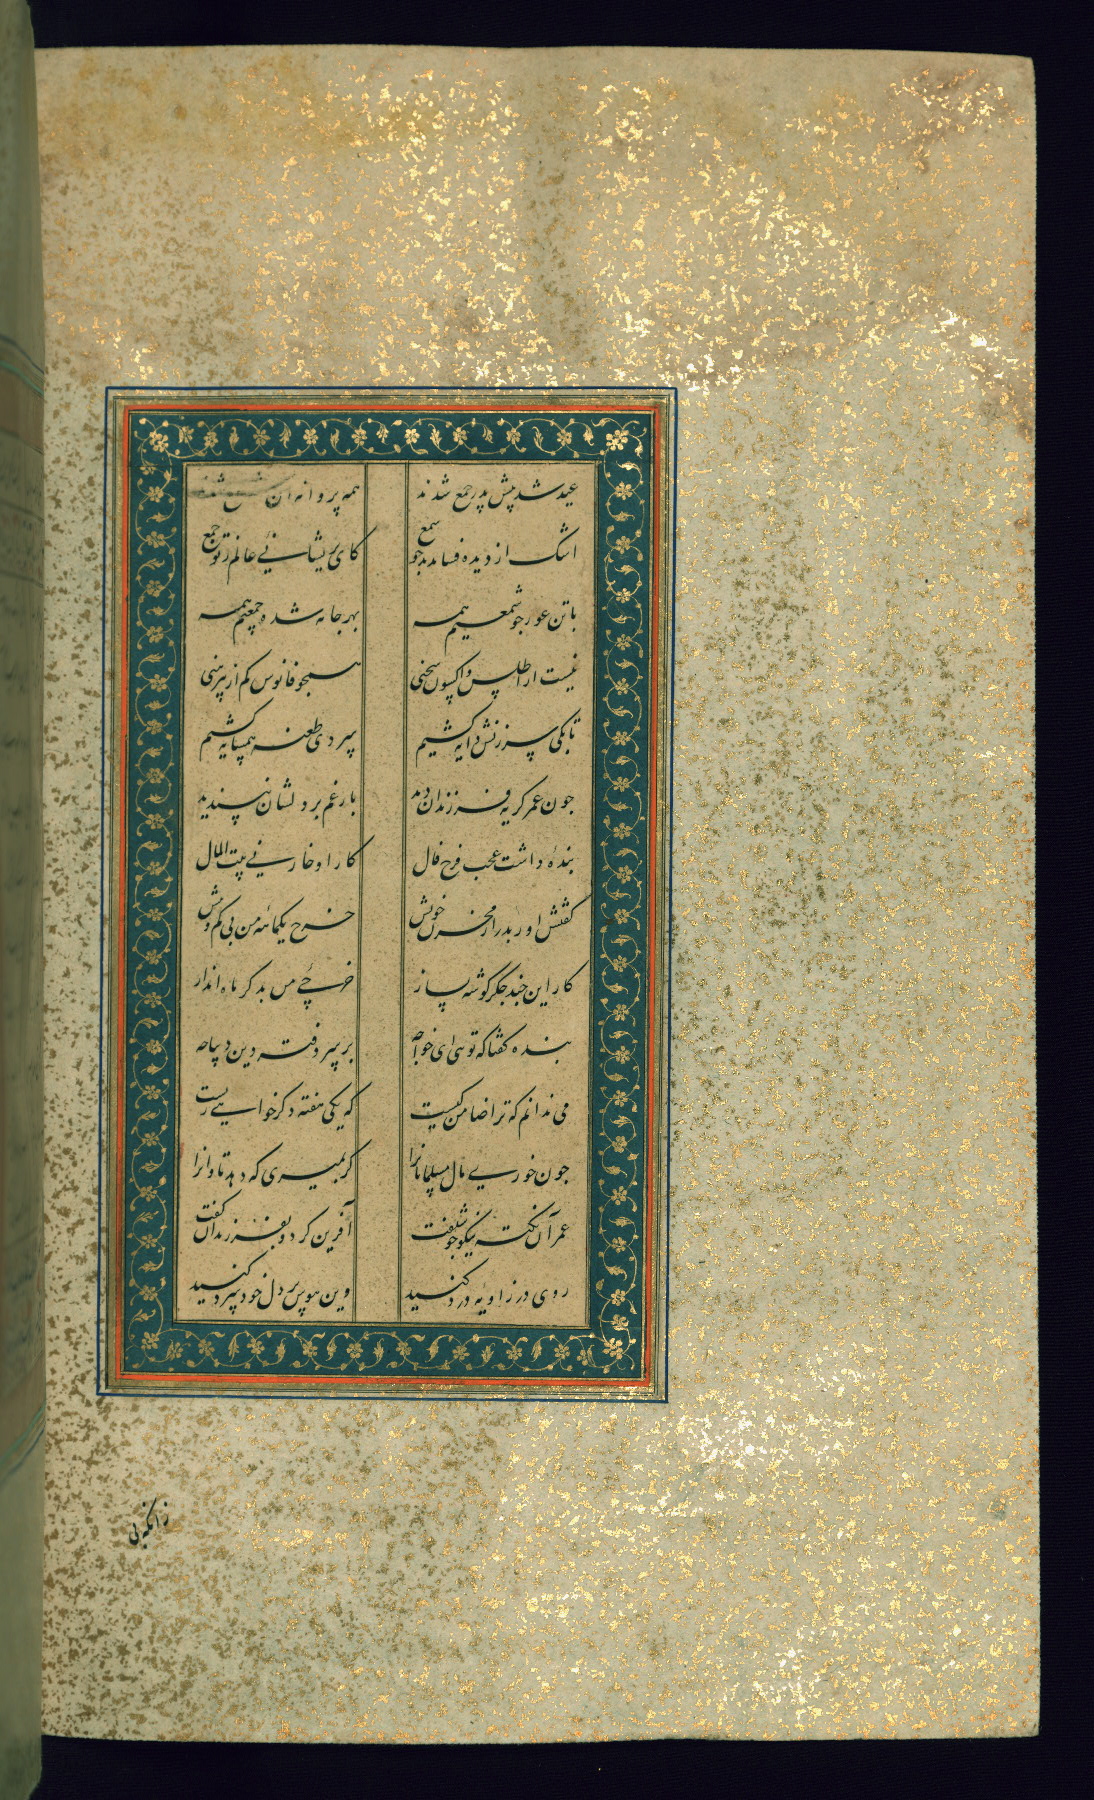 عید شد پیش پدر جمع شدند همه پروانه آن شمع شدند
اشک از دیده فساندند جو سمع کای پریشانی عالم ز تو جمع
با تن عور جو شمعیم همه بهر جامه شده جمعیم همه
نیست از اطلس و اکسون سخنی همجو فانوس کم از پیرهنی
تا بکی سرزنش دایه کشیم سردی طعنه همسایه کشیم
جون عمر کریه فرزندان دید بار غم بر دلشان نپسندید
بندهٔ داشت عجب فرخ فال کار او خازنی بیت المال
کفتش اور بدر از مخزن خویش خرج یکماهٔ من بی کم و بیش
کار این جند جکر کوشه بساز خرجی من بدکر ماه انداز
بنده کفتا که توئی ای خواجه بر سر دفتر دین دیباجه
می ندانم که ترا ضامن کیست که یکی هفته دکر خواهی زیست
جون خوری مال مسلمانانرا کر بمیری که دهد تاوانرا
عمر آن نکته نیکو جو شنفت آفرین کرد و بفرزندان کفت
روی در زاویه درد کنید وین هوس بر دل خود سرد کنید
زانکه بی